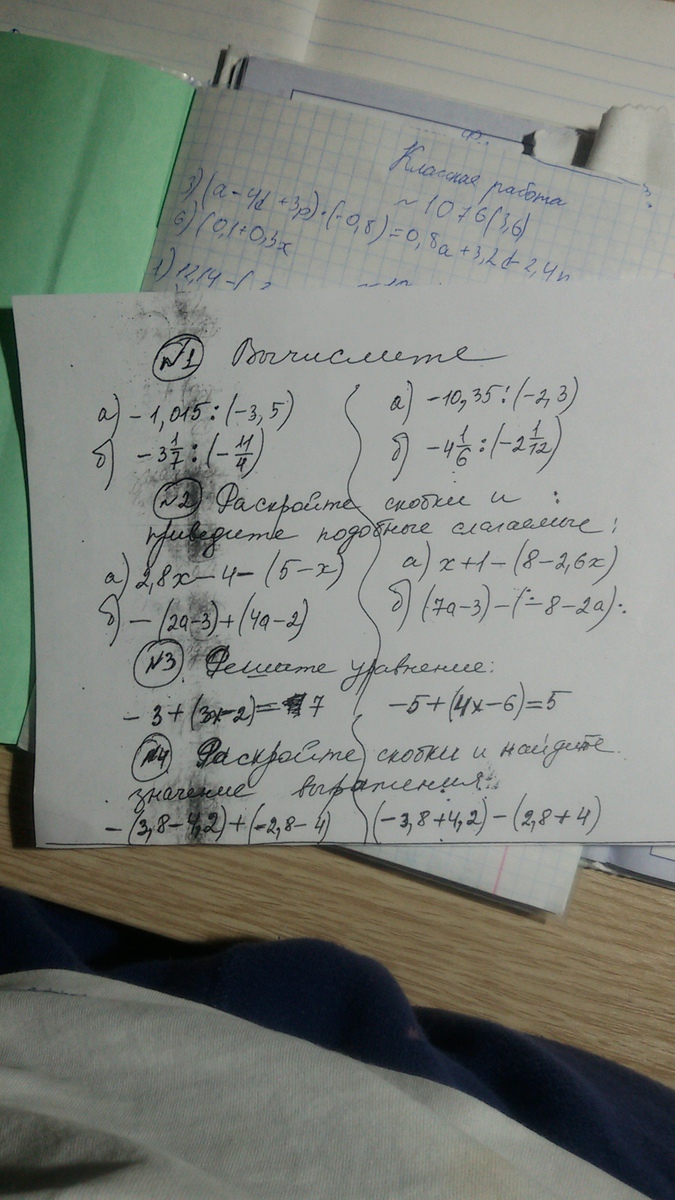 Классная работа
~ 1076(3,6)
5) (a-4d+3p)·(-0,8)=0,8a+3,2d-2,4n
6) (0,1+0,3x
1) 12,14-(
№1 Вычислите
а) -1,015:(-3,5)
б) -3 1/7 : (-11/4)
а) -10,35:(-2,3)
б) -4 1/6 : (-2 1/12)
№2 Раскройте скобки и :
приведите подобные слагаемые:
а) 2,8x-4-(5-x)
б) -(2a-3)+(4a-2)
а) x+1-(8-2,6x)
б) (7a-3)-(-8-2a).
№3 Решите уравнение:
-3+(3x-2)=7
-5+(4x-6)=5
№4 Раскройте скобки и найдите
значение выражения:
-(3,8-4,2)+(-2,8-4)
(-3,8+4,2)-(2,8+4)